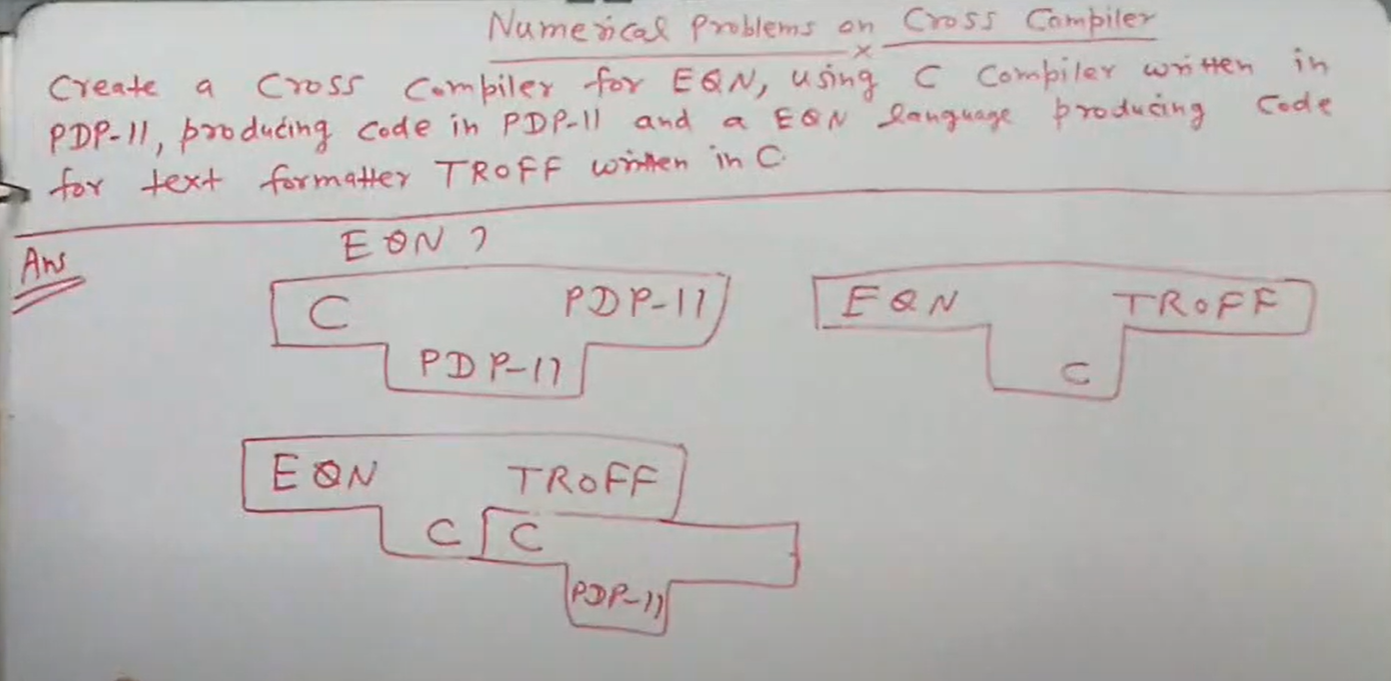 Numerical Problems on Cross Compiler
Create a Cross Compiler for EQN, using C Compiler written in
PDP-11, producing code in PDP-11 and a EQN language producing code
for text formatter TROFF written in C.
Ans
EQN ?
C PDP-11
PDP-11
EQN TROFF
C
EQN TROFF
C C
PDP-11